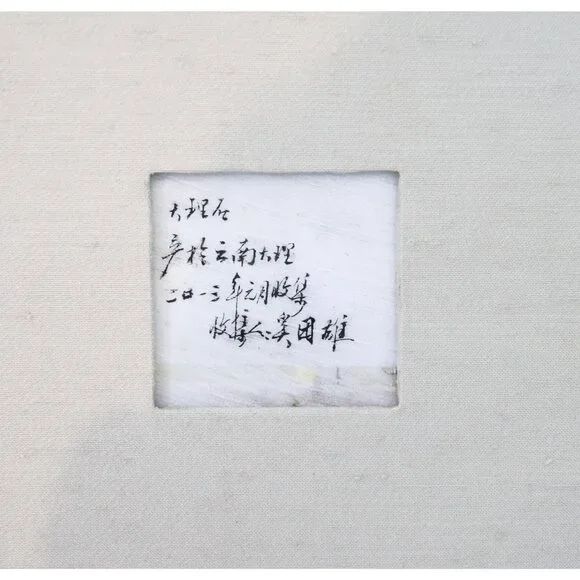 大理石
产於云南大理
二〇一三年元月收集
收集人:吴国雄